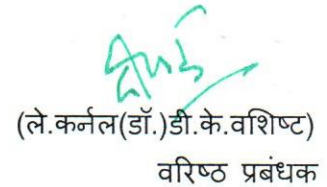 (ले.कर्नल(डॉ.)डी.के.वशिष्ट)
वरिष्ठ प्रबंधक